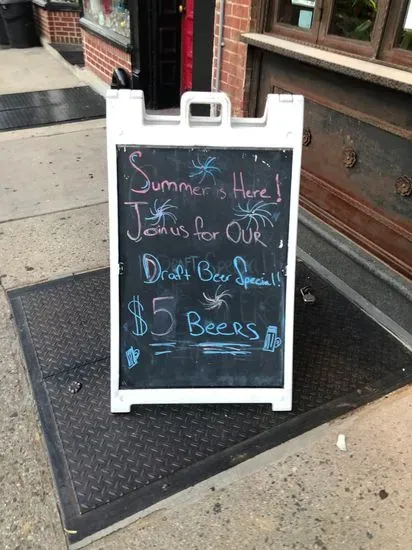 Summer is Here!
Join us for OUR
Draft Beer Special!!
$5 Beers